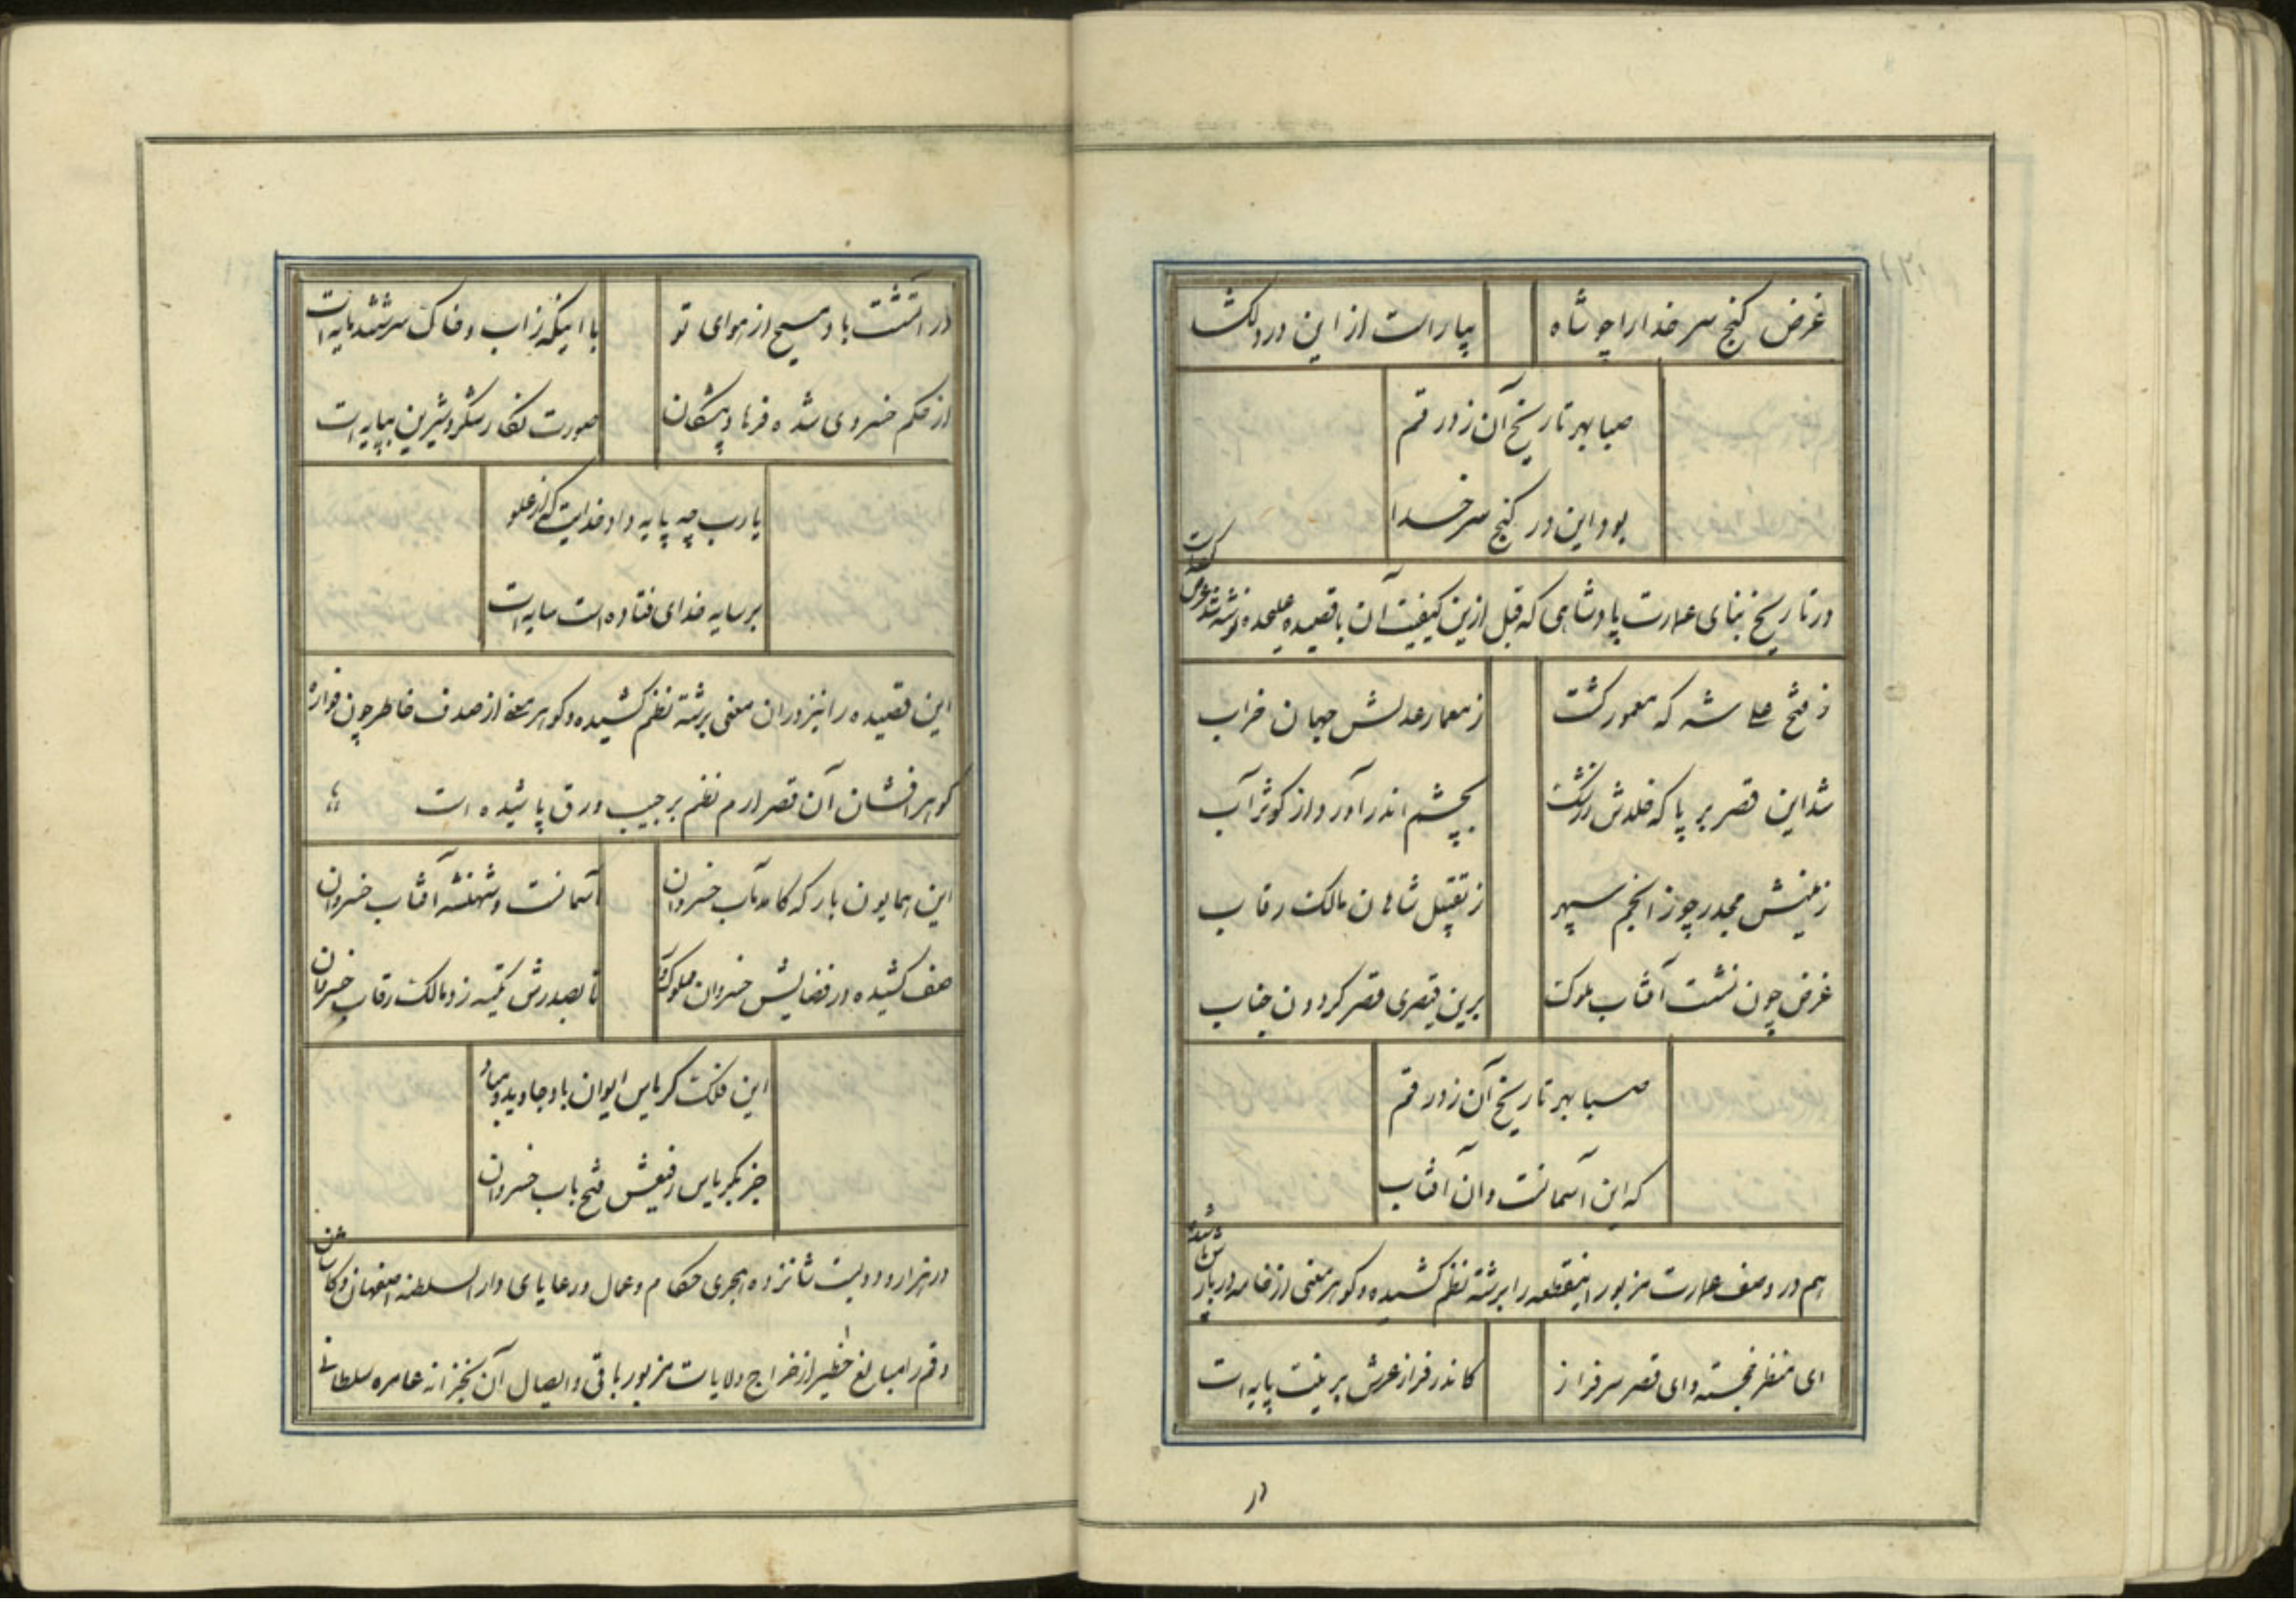 غرض گنج سر خدا را چو شاه
بیاراست از این در دلگشا
صبا بهر تاریخ آن زد رقم
بود این در گنج سر خدا
در تاریخ بنای عمارت پادشاهی که قبل ازین کیفیت آن با قصیده علیحده نوشته شده عرض
ز فتح علی شه که معمور گشت
ز معمار عدلش جهان خراب
شد این قصر بر پا که خلدش ز رشک
بچشم اندر آورد از کوثر آب
زمینش مجدر چو ز انجم سپهر
ز تقبیل شاهان مالک رقاب
غرض چون نشست آفتاب ملوک
برین قیصری قصر گردون جناب
صبا بهر تاریخ آن زد رقم
که این آسمانست و آن آفتاب
هم در وصف عمارت مزبور اینقطعه را برشته نظم کشیده و گوهر معنی از خامه دربار
ای منظر خجسته و ای قصر سرفراز
کاندر فراز عرش برینت پایه است
در
در انگشت باد مسیح از هوای تو
با اینکه ز آب و خاک سرشتند پایه است
از حکم خسروی شده فرهاد پیشگان
صورت نگار شکر و شیرین بپایه است
یا رب چه پایه داد خدایت کز علو
بر سایه خدای فتاده است سایه است
این قصیده را نیز در ان معنی برشته نظم کشیده و گوهر سخن از صدف خاطر چون فواره
گوهر افشان آن قصر ارم نظم بر جیب ورق پاشیده است
این همایون بارگه کامد مآب خسروان
آسمانست و شهنشه آفتاب خسروان
صف کشیده در فضایش خسروان ملوک
تا بصدرش تکیه زد مالک رقاب خسروان
این فلک کریاس ایوان باد جاوید و مباد
جز بکریاس رفیعش فتح باب خسروان
در هزار و دویست شانزده هجری حکام و عمال و رعایای دار السلطنه اصفهان و کاشان
و قم را مبالغ خطیر از خراج ولایات مزبور باقی و ایصال آن بخزانه عامره سلطانی